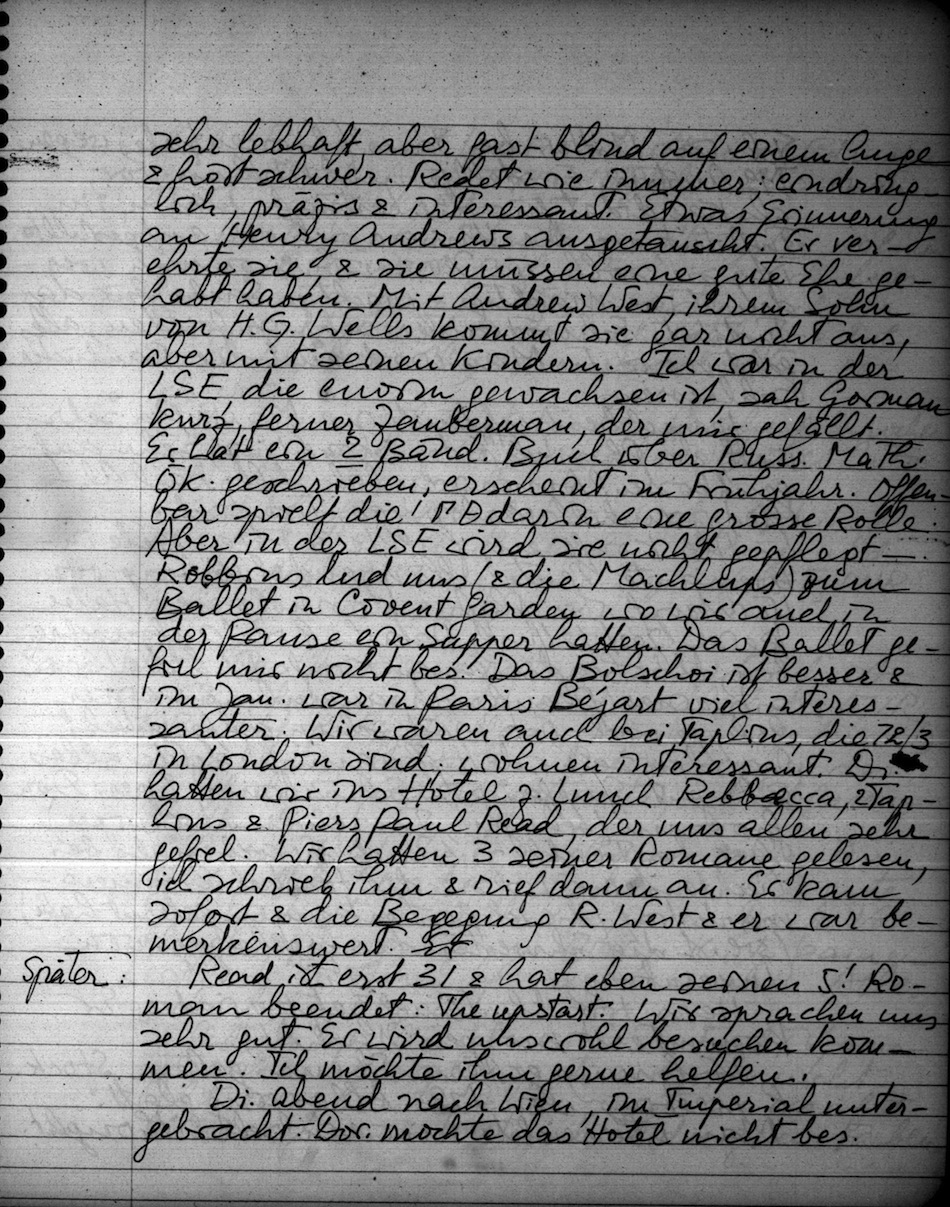 sehr lebhaft, aber fast blind auf einem Auge
& hört schwer. Redet wie immer; eindring-
lich, präzis & interessant. Etwas Erinnerung
an Henry Andrews ausgetauscht. Er ver-
ehrte sie & sie müssen eine gute Ehe ge-
habt haben. Mit Andrew West, ihrem Sohn
von H.G. Wells kommt sie gar nicht aus,
aber mit seinen Kindern. Ich war in der
LSE, die enorm gewachsen ist, sah Gorman
kurz, ferner Zauberman, der mir gefällt.
Er hat ein 2 Bänd. Buch über Russ. Math.
Ök. geschrieben, erscheint im Frühjahr. Offen-
bar spielt die darin eine grosse Rolle.
Aber in der LSE wird sie nicht gepflegt —.
Robbins lud uns (& die Machlups) zum
Ballet in Covent Garden wo wir auch in
der Pause ein Supper hatten. Das Ballet ge-
fiel mir nicht bes. Das Bolschoi ist besser &
im Jan. war in Paris Béjart viel interes-
santer. Wir waren auch bei Taplins, die 72/3
in London sind; wohnen interessant. Di.
hatten wir ins Hotel z. Lunch Rebbecca, 2 Tap-
lins & Piers Paul Read, der uns allen sehr
gefiel. Wir hatten 3 seiner Romane gelesen,
ich schrieb ihm & rief dann an. Er kam
sofort & die Begegnung R. West & er war be-
merkenswert.
Später: Read ist erst 31 & hat eben seinen 5! Ro-
man beendet: The upstart. Wir sprachen uns
sehr gut. Er wird uns wohl besuchen kom-
men. Ich möchte ihm gerne helfen.
Di. abend nach Wien, im Imperial unter-
gebracht. Dor. mochte das Hotel nicht bes.